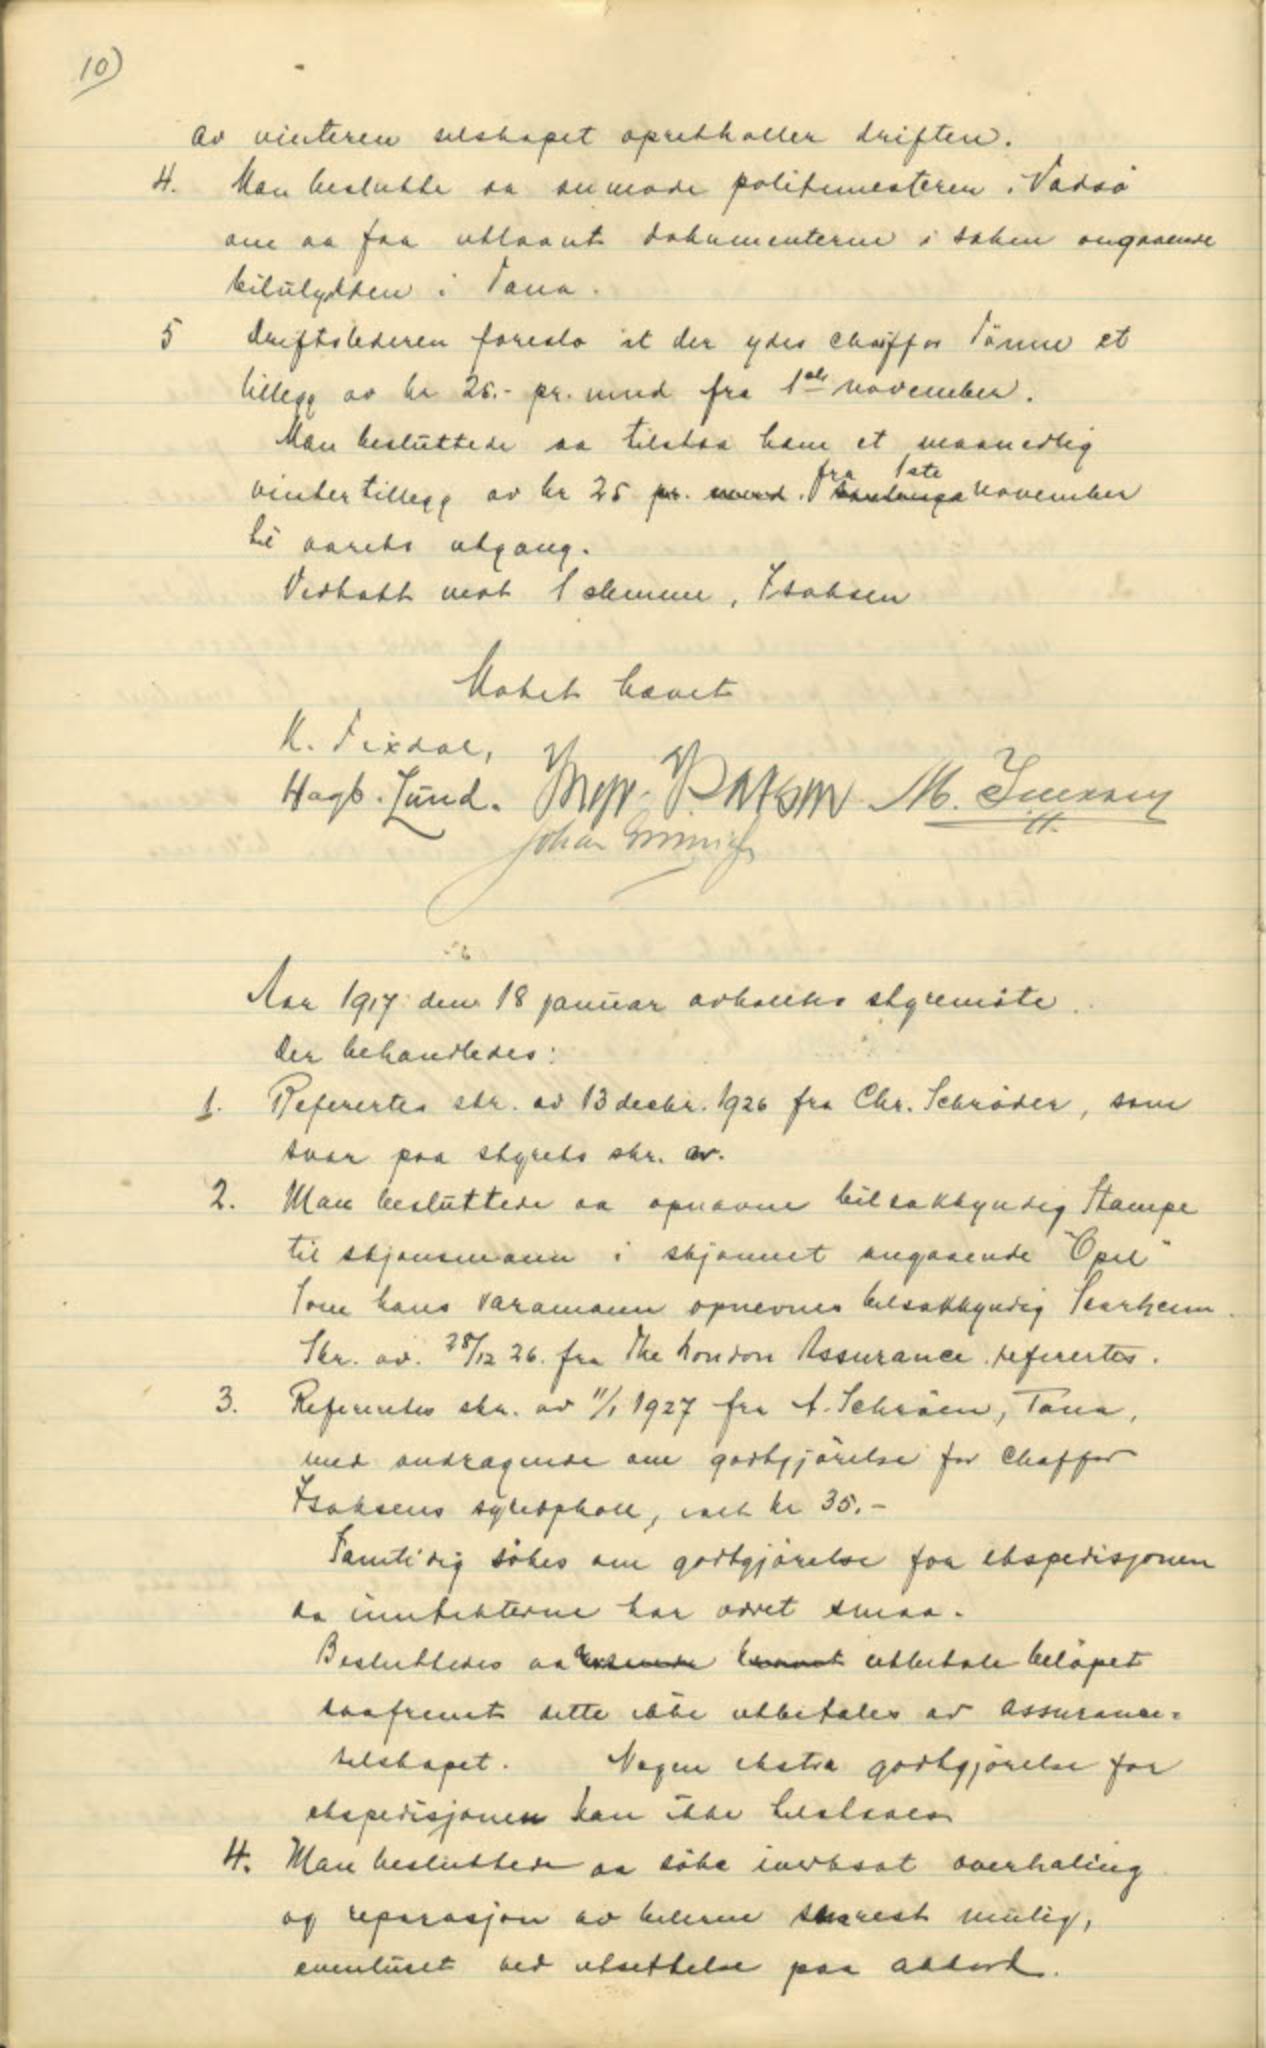 10)
av vinteren selskapet opretholler driften.
4. Man beslutte aa anmode politimesteren i Vadsö
om aa faa utlaant dokumenterne i saken angaaende
bilulykken i Tana.
5 Driftslederen foreslo at der ydes chauffør Tönne et
tillegg av kr 25.- pr. mnd fra 1ste november.
Man besluttede aa tilstaa ham et maanedlig
vintertillegg av kr 25 pr. mnd. fra 1ste november
til aarets utgang.
Vedtatt mot 1 stemme, Isaksen
Motet hævet
K. Tixdal,
Hagb. Lund. M.
Johan
Aar 1917 den 18 januar avholtes styremöte.
Der behandledes:
1. Refertes skr. av 13 decbr. 1926 fra Chr. Schröder, som
svar paa styrets skr. av.
2. Man besluttede aa opnavne bilsakkyndig Stampe
til skjønsmann i skjønnet angaaende "Opel"
Som hans varamann opnevnes bilsakkyndig
Skr. av. 28/12 26. fra The London Assurance refertes.
3. Refertes skr. av 11/1 1927 fra A. Schröen, Tana,
med andragende om godtgjörelse for chaffør
Isaksens sykeophold, ialt kr 35.-
Samtidig sökes om godtgjörelse for ekspedisjonen
da inntekterne har været smaa.
Besluttedes aa utbetale belöpet
saafremt dette ikke utbetales av assurance-
selskapet. Nogen ekstra godtgjörelse for
ekspedisjonen kan ikke tilstaaes
4. Man besluttede aa söke iverksat overhaling
og reparasjon av bilerne snarest mulig,
eventuelt ved utsettelse paa akkord.